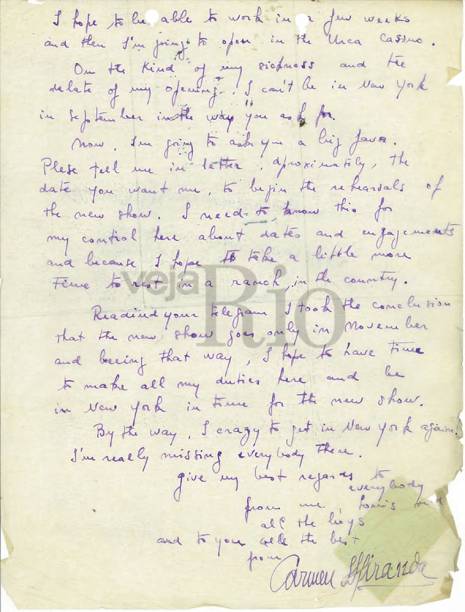 I hope to be able to work in a few weeks
and then I'm going to open in the Urca Casino.
On the kind of my sickness and the
delate of my opening, I can't be in New York
in September in the way you ask for.
Now, I'm going to ask you a big favor.
Plese tell me in letter, aproximatily, the
date you want me, to begin the rehearsals of
the new show. I need to know this for
my control here about dates and engagements
and because I hope to take a little more
time to rest in a ranch, in the country.
veja Rio
Readind your telegram I took the conclusion
that the new show goes only in November
and beeing that way, I hope to have time
to make all my duties here and be
in New York in time for the new show.
By the way, I crazy to get in New York again.
I'm really missing everybody there.
give my best regards to
everybody
from me,
all the boys
and to you all the best
from
Carmen Miranda